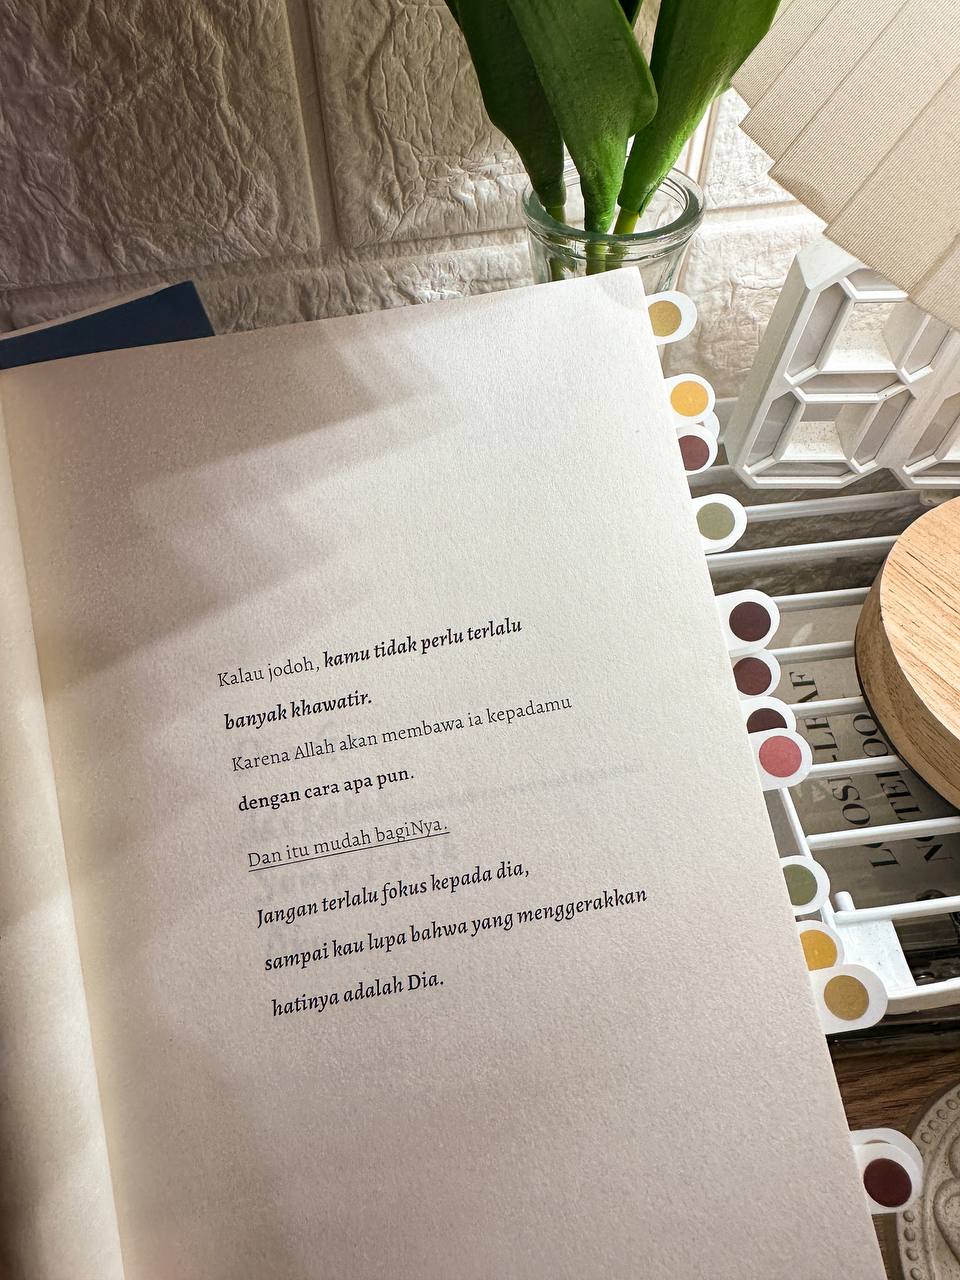 Kalau jodoh, kamu tidak perlu terlalu
banyak khawatir.
Karena Allah akan membawa ia kepadamu
dengan cara apa pun.
Dan itu mudah bagiNya.
Jangan terlalu fokus kepada dia,
sampai kau lupa bahwa yang menggerakkan
hatinya adalah Dia.